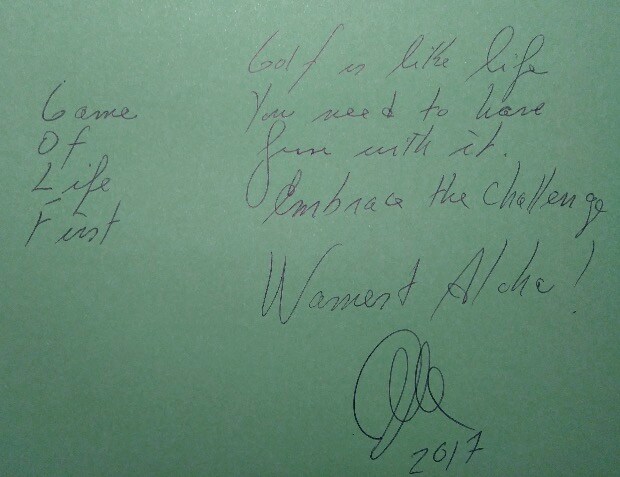 Game
Of
Life
First
Golf is like life
You need to have
fun with it.
Embrace the challenge
Warmest Aloha!
2017